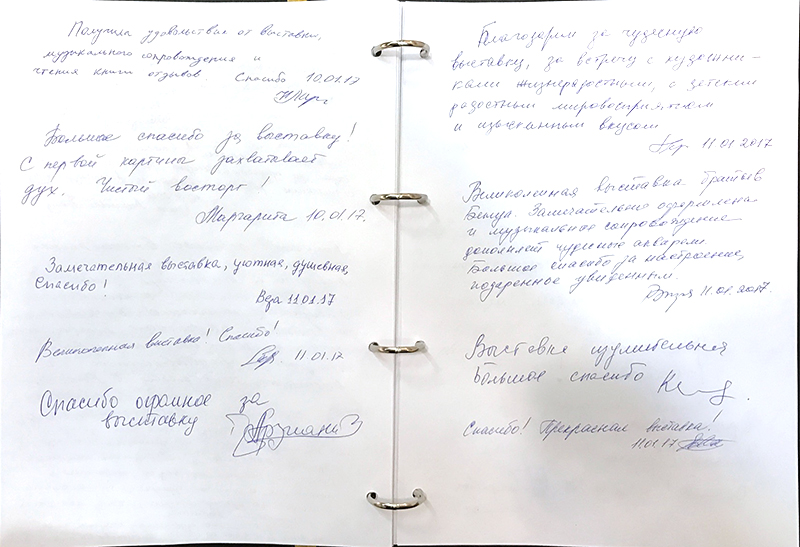 Получила удовольствие от выставки,
музыкального сопровождения и
чтения книги отзывов. Спасибо 10.01.17
Большое спасибо за выставку!
С первой картины захватывает
дух. Чистый восторг!
Маргарита 10.01.17.
Замечательная выставка, уютная, душевная,
Спасибо!
Вера 11.01.17
Великолепная выставка! Спасибо!
11.01.17
Спасибо огромное за
выставку
Благодарим за чудесную
выставку, за встречу с художни-
ками жизнерадостными, с детским
радостным мировосприятием
и изысканным вкусом
11 01 2017
Великолепная выставка братьев
Замечательно оформлена
и музыкальное сопровождение
дополняет чудесные акварели.
Большое спасибо за настроение,
подаренное увиденным.
11.01.2017.
Выставка изумительная
Большое спасибо
Спасибо! Прекрасная выставка!
11.01.17